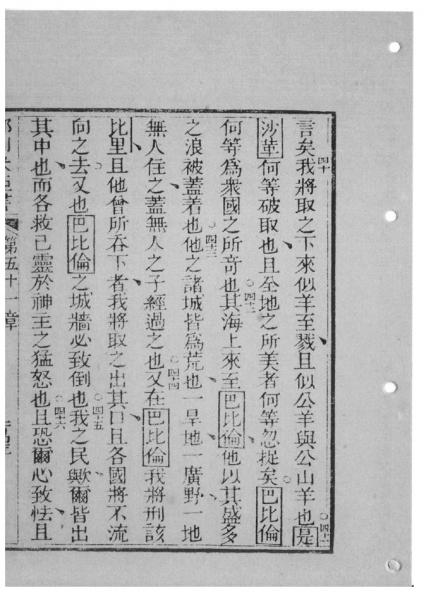 言矣四十我將取之下來似羊至戮且似公羊與公山羊也四十一是
沙革何等破取也且全地之所美者何等忽捉矣巴比倫
何等爲衆國之所奇也四十二其海上來至巴比倫他以其盛多
之浪被蓋着也四十三他之諸城皆爲荒也一旱地一廣野一地
無人住之蓋無人之子經過之也四十四又在巴比倫我將刑該
比里且他曾所吞下者我將取之出其口且各國將不流
向之去又也巴比倫之城牆必致倒也四十五我之民歟爾皆出
其中也而各救己靈於神王之猛怒也四十六且恐爾心致怯且
第五十一章